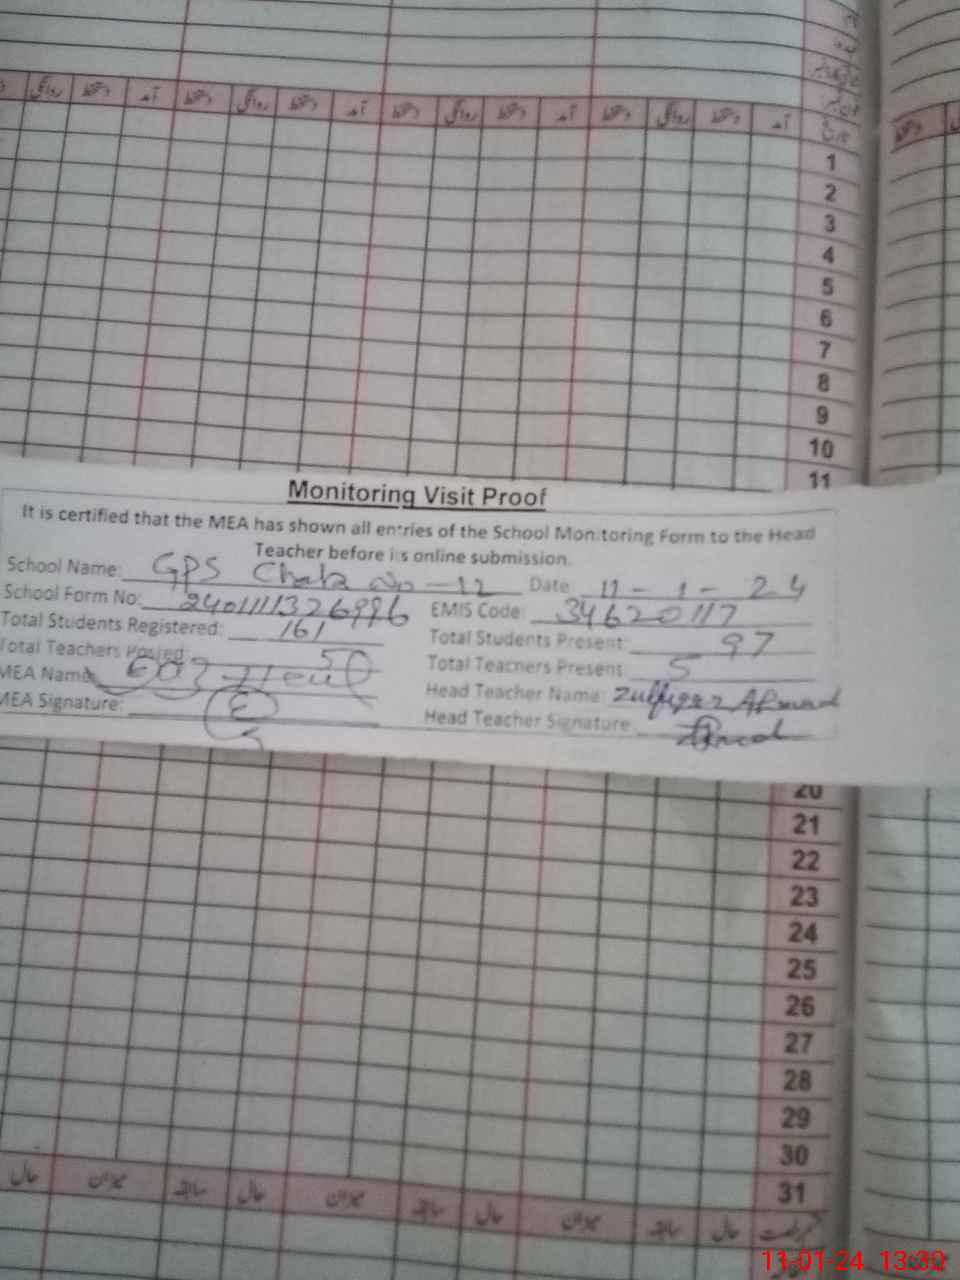 نام
عہدہ
شناختی کارڈ نمبر
فون نمبر
آمد دستخط روانگی دستخط آمد دستخط روانگی دستخط آمد دستخط روانگی دستخط آمد دستخط روانگی
تاریخ
دستخط
1
2
3
4
5
6
7
8
9
10
11
Monitoring Visit Proof
It is certified that the MEA has shown all entries of the School Monitoring Form to the Head
Teacher before its online submission.
School Name: GPS Chak No-12 Date 11-1-24
School Form No: EMIS Code: 34620117
Total Students Registered: 161 Total Students Present: 97
Total Teachers Posted: 5 Total Teachers Present 5
MEA Name Head Teacher Name: Zulfiqar Ahmad
MEA Signature: Head Teacher Signature
20
21
22
23
24
25
26
27
28
29
30
31
رخصت حال سابقہ میزان حال سابقہ میزان حال سابقہ میزان حال
11-01-24 13:30